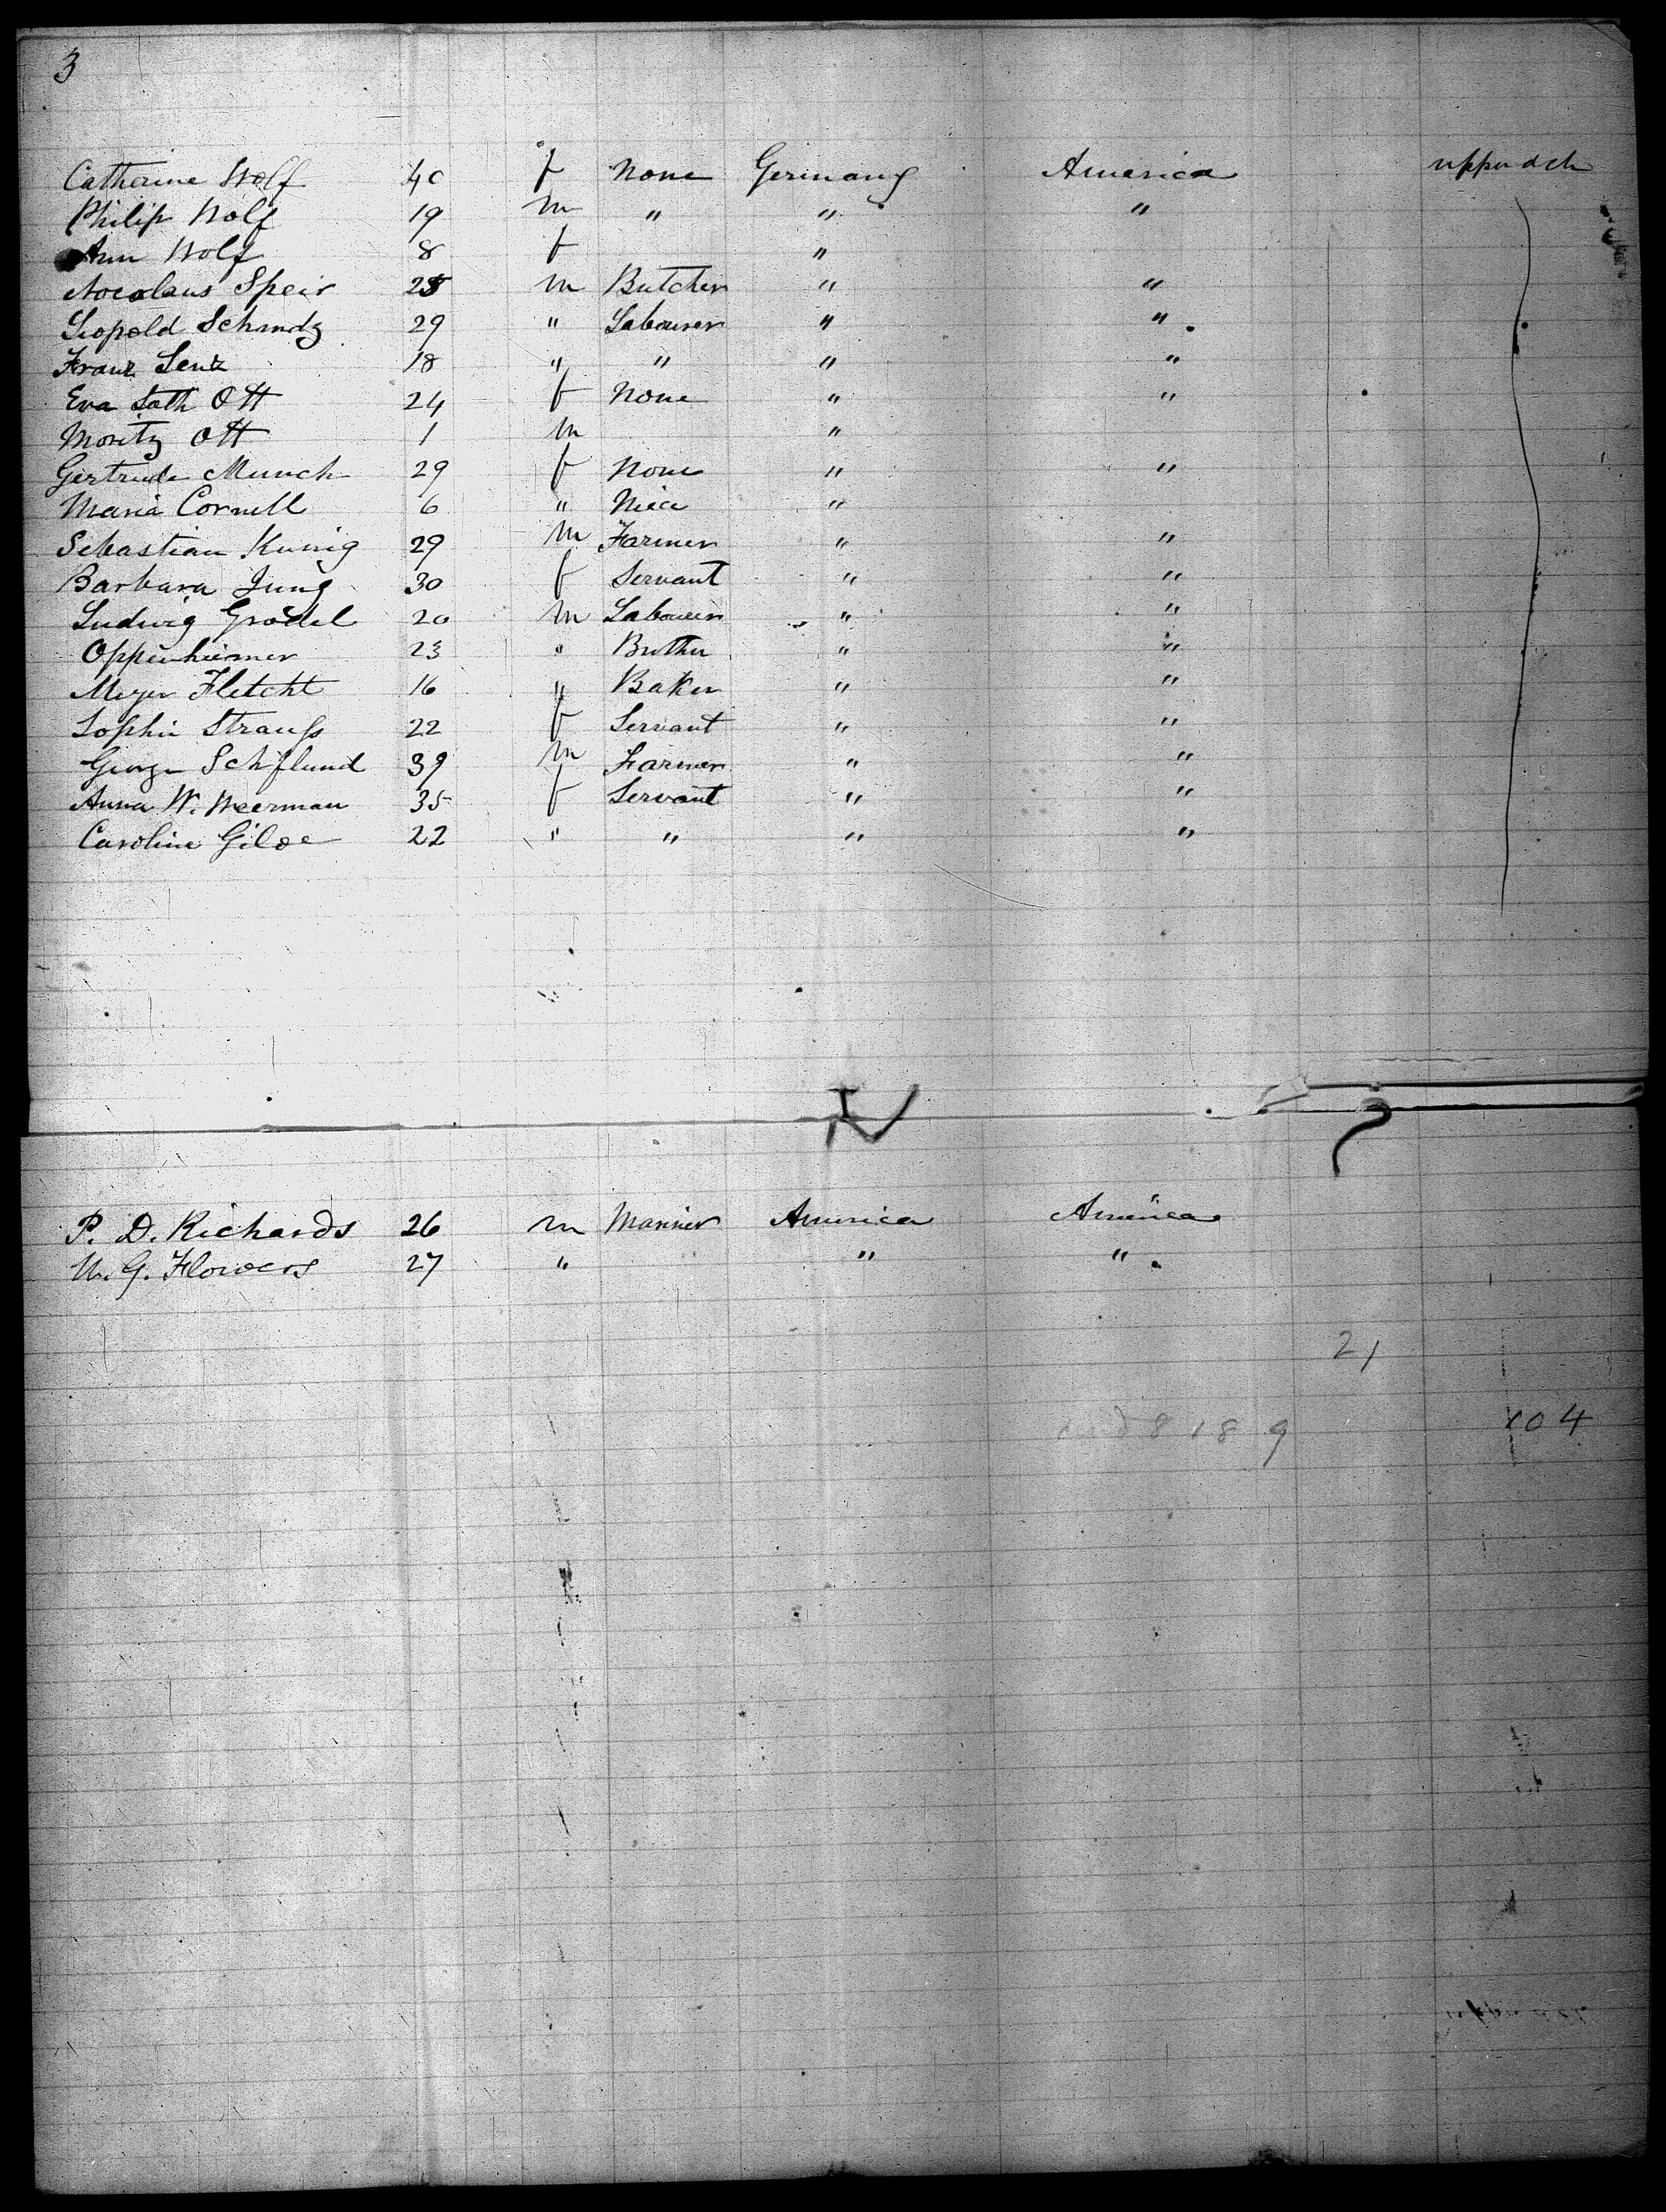 3
Catherine Wolf 40 f None Germany America upper dck
Philip Wolf 19 m " " "
Ann Wolf 8 f "
Nocolaus Speir 25 m Butcher " "
Leopold Schmdz 29 " Labourer " "
Franz Lenz 18 " " " "
Eva Ott 24 f None " "
Moritz Ott 1 m "
Gertrude Munch 29 f None " "
Maria Cornell 6 " Niece "
Sebastian Kunig 29 m Farmer " "
Barbara Jung 30 f Servant " "
Ludwig Grodel 20 m Labourer " "
Oppenheimer 23 " " "
Meyer Fletcht 16 " Baker " "
Sophie Strauss 22 f Servant " "
George Schiflund 39 m Farmer " "
Anna W. Weerman 35 f Servant " "
Caroline Giloe 22 " " " "
P. D. Richards 26 m Marrier America America
W. G. Flowers 27 " " "
21
104